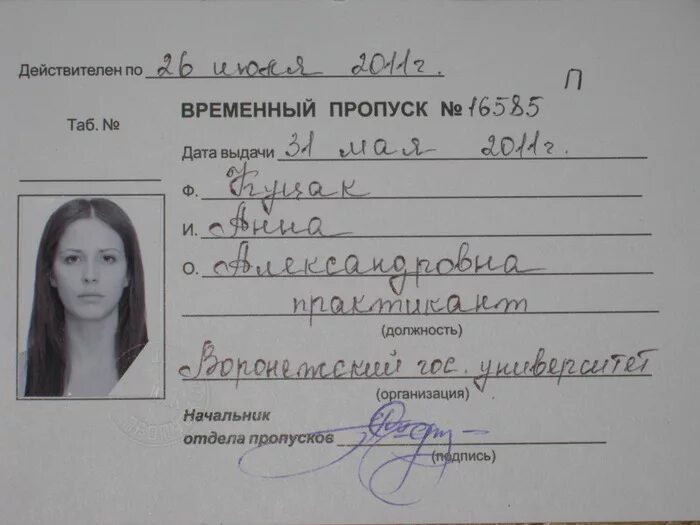 Действителен по 26 июля 2011г.
П
Таб. №
ВРЕМЕННЫЙ ПРОПУСК № 16585
Дата выдачи 31 мая 2011г.
Ф. Куцак
И. Анна
О. Александровна
практикант
(должность)
Воронежский гос. университет
(организация)
Начальник
отдела пропусков
(подпись)